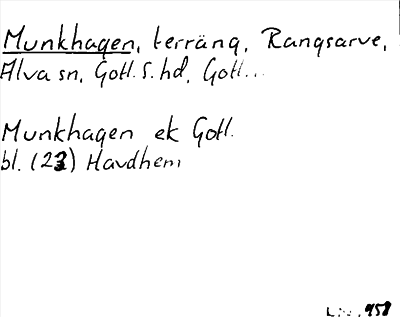 Munkhagen, terräng, Rangsarve,
Alva sn, Gotl. S. hd, Gotl...
Munkhagen ek Gotl.
bl. (23) Havdhem
958